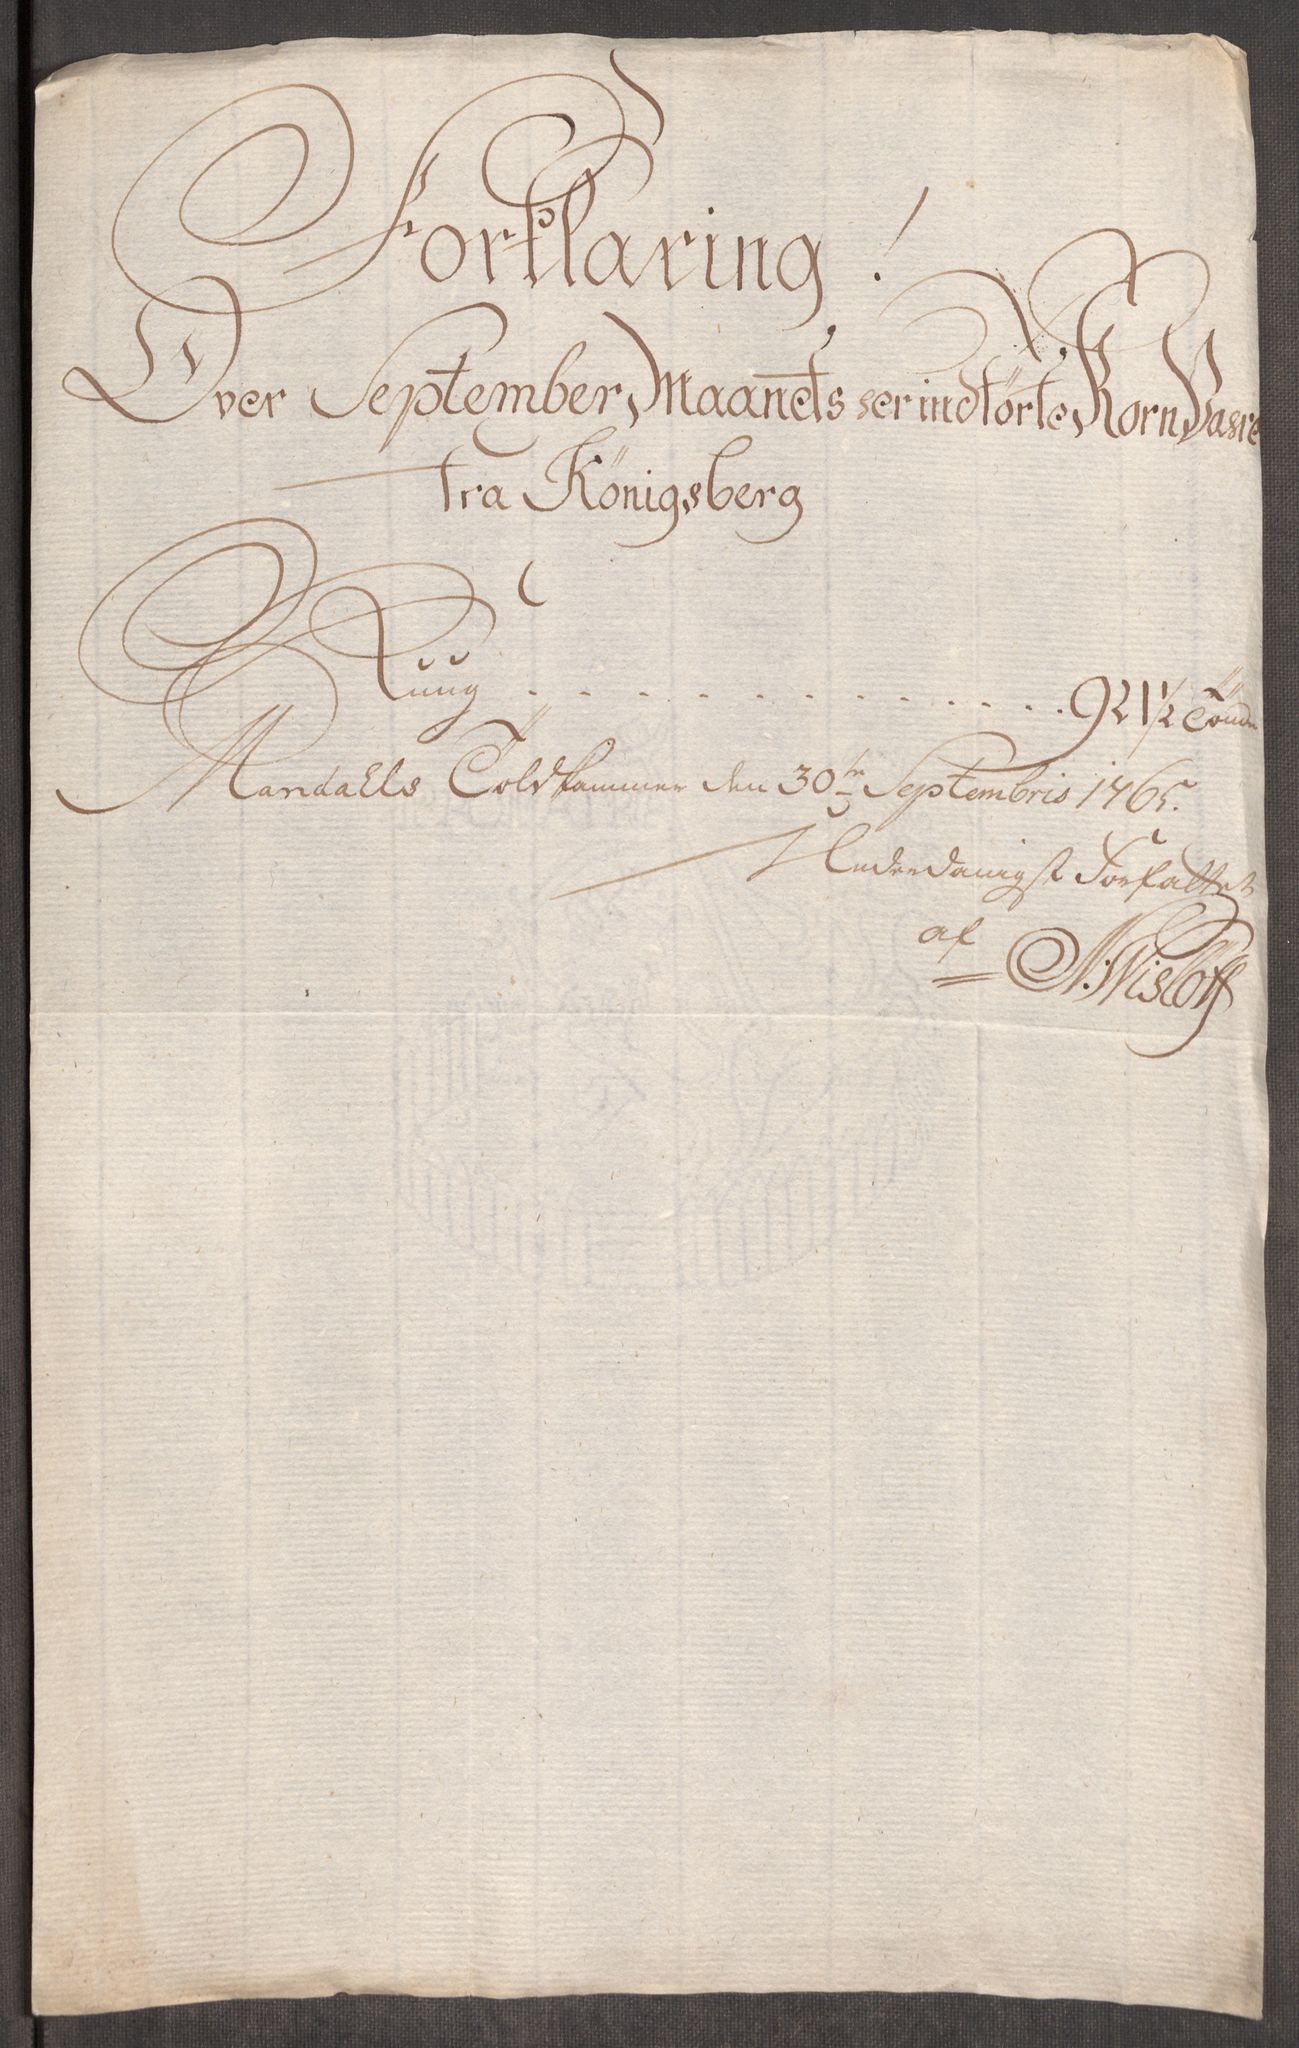 Forklaring!
Over September Maanets her indförte Korn Vahre
fra Königsberg
Ruug . . . . . . . . . . . . . 921½ Tönder
Mandahls Toldkammer den 30te Septembris 1765.
Underdanigst Forfattet
af N: Wislöff